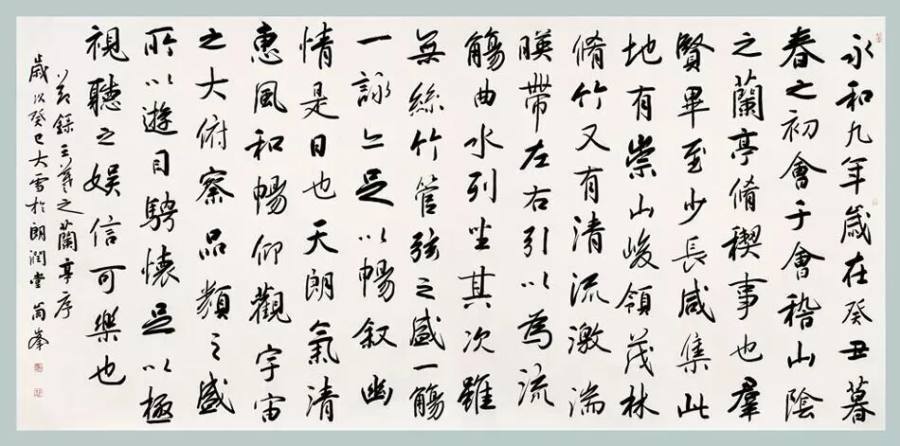 永和九年歲在癸丑暮
春之初會于會稽山陰
之蘭亭脩稧事也羣
賢畢至少長咸集此
地有崇山峻領茂林
脩竹又有清流激湍
暎帶左右引以為流
觴曲水列坐其次雖
無絲竹管弦之盛一觴
一詠亦足以暢叙幽
情是日也天朗氣清
惠風和暢仰觀宇宙
之大俯察品類之盛
所以遊目騁懷足以極
視聽之娛信可樂也
節錄王羲之蘭亭序
歲次癸巳大雪於朗潤堂